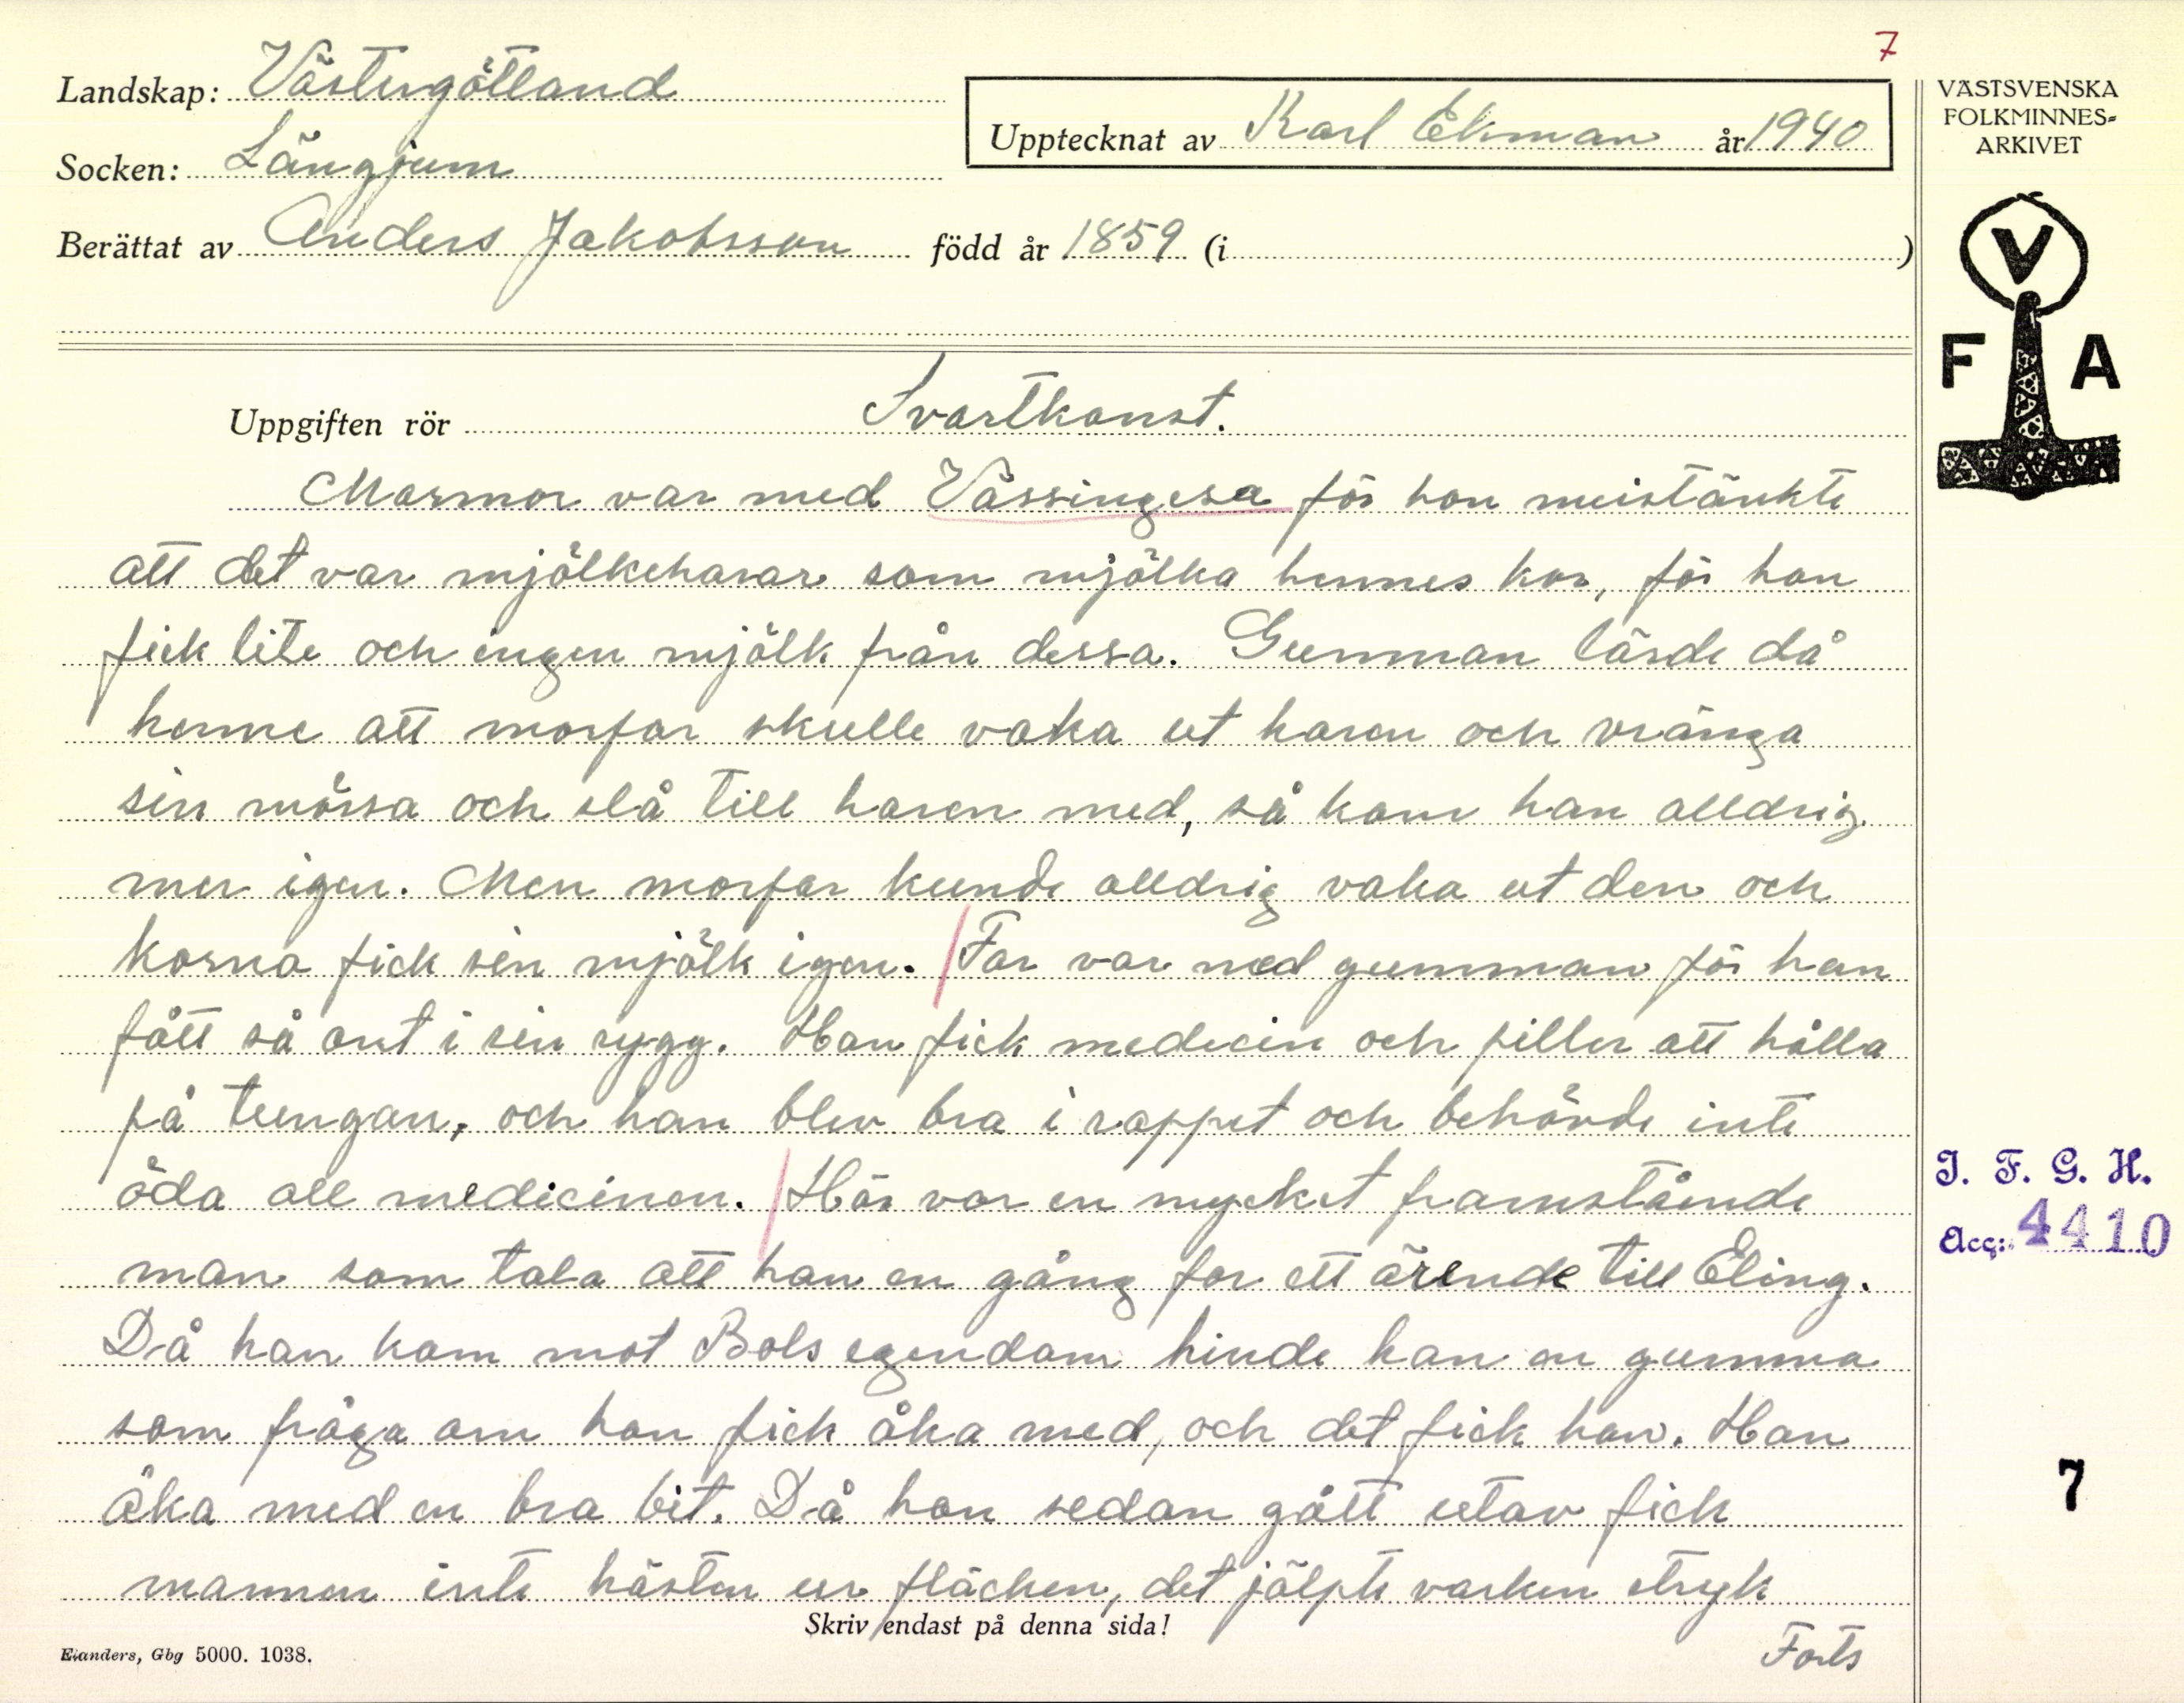 7
Landskap: Västergötland
Socken: Längjum
Berättat av Anders Jakobsson född år 1859 (i )
Upptecknat av Karl Ekman år 1940
VÄSTSVENSKA
FOLKMINNES-
ARKIVET
V
F A
Uppgiften rör Svartkonst.
Mormor var med Vässingesa för hon meistänkte
att det var mjölkeharar som mjölka hennes kor, för hon
fick lite och ingen mjölk från dessa. Gumman lärde då
henne att morfar skulle vaka ut haren och vränga
sin mössa och slå till haren med, så kom han alldrig
mer igen. Men morfar kunde alldrig vaka ut den och
korna fick sin mjölk igen. / Far var med gumman för han
fått så ont i sin rygg. Han fick medecin och piller att hålla
på tungan, och han blev bra i rappet och behövde inte
öda all medicinen. / Här var en mycket framstående
man som tala att han en gång for ett ärende till Eling.
Då han kom mot Bols egendom hinde han en gumma
som fråga om hon fick åka med, och det fick hon. Hon
åka med en bra bit. Då hon sedan gått utav fick
mannen inte hästen ur fläcken, det jälpte varken stryk
Forts
Skriv endast på denna sida!
Elanders, Gbg 5000. 1038.
I. F. G. H.
Acc: 4410
7